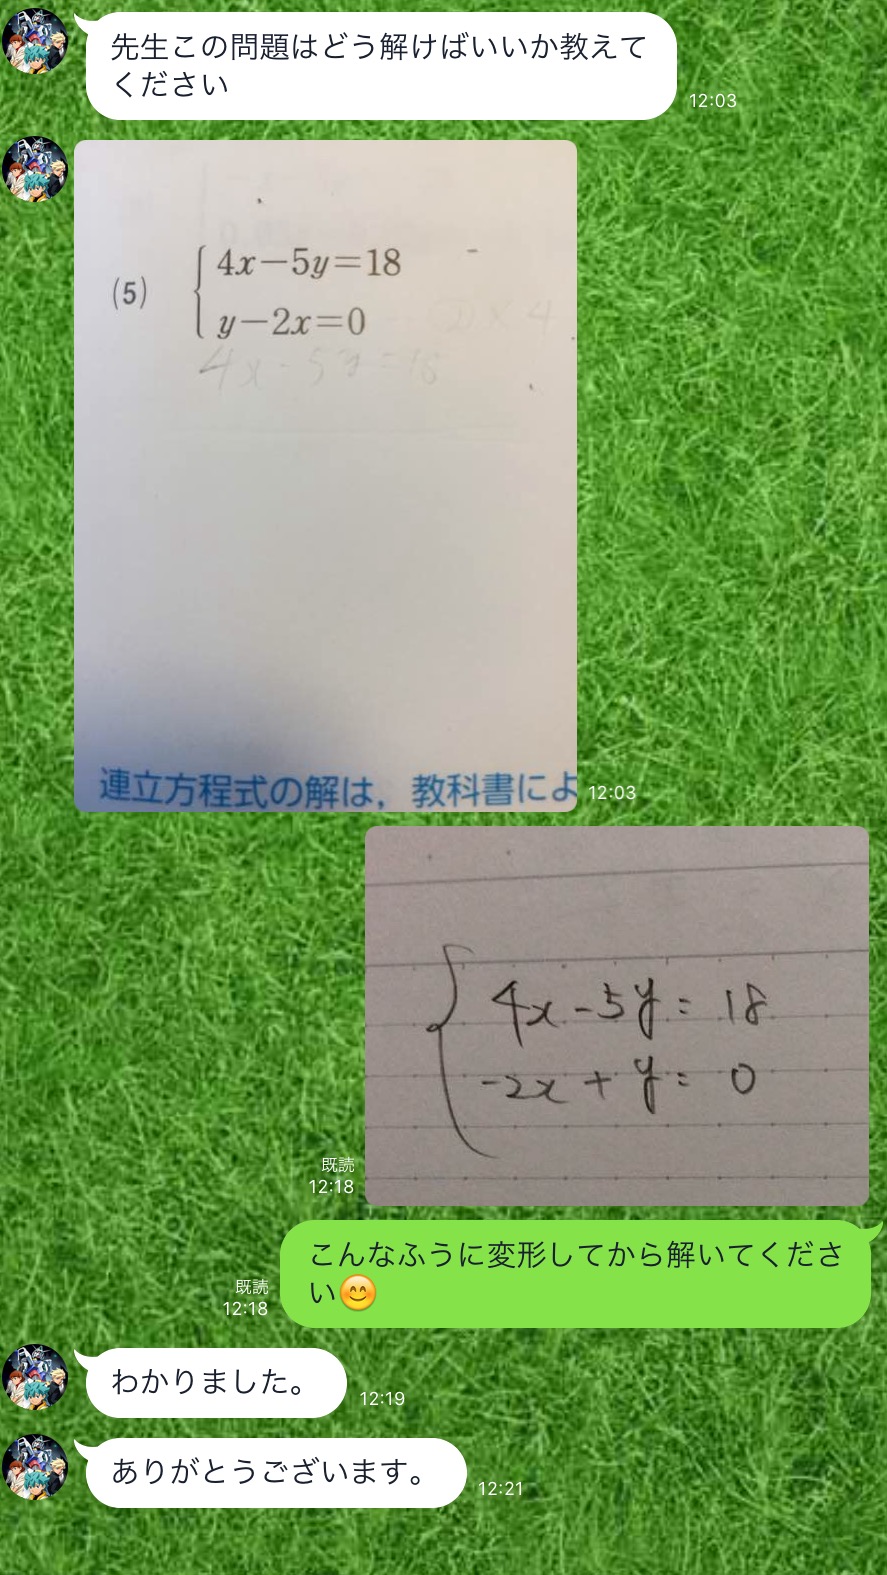 先生この問題はどう解けばいいか教えて
ください
12:03
(5)
4x−5y=18
y−2x=0
② × 4
4x - 5y = 18
連立方程式の解は，教科書によ
12:03
4x - 5y = 18
-2x + y = 0
既読
12:18
こんなふうに変形してから解いてくださ
い😊
既読
12:18
わかりました。
12:19
ありがとうございます。
12:21